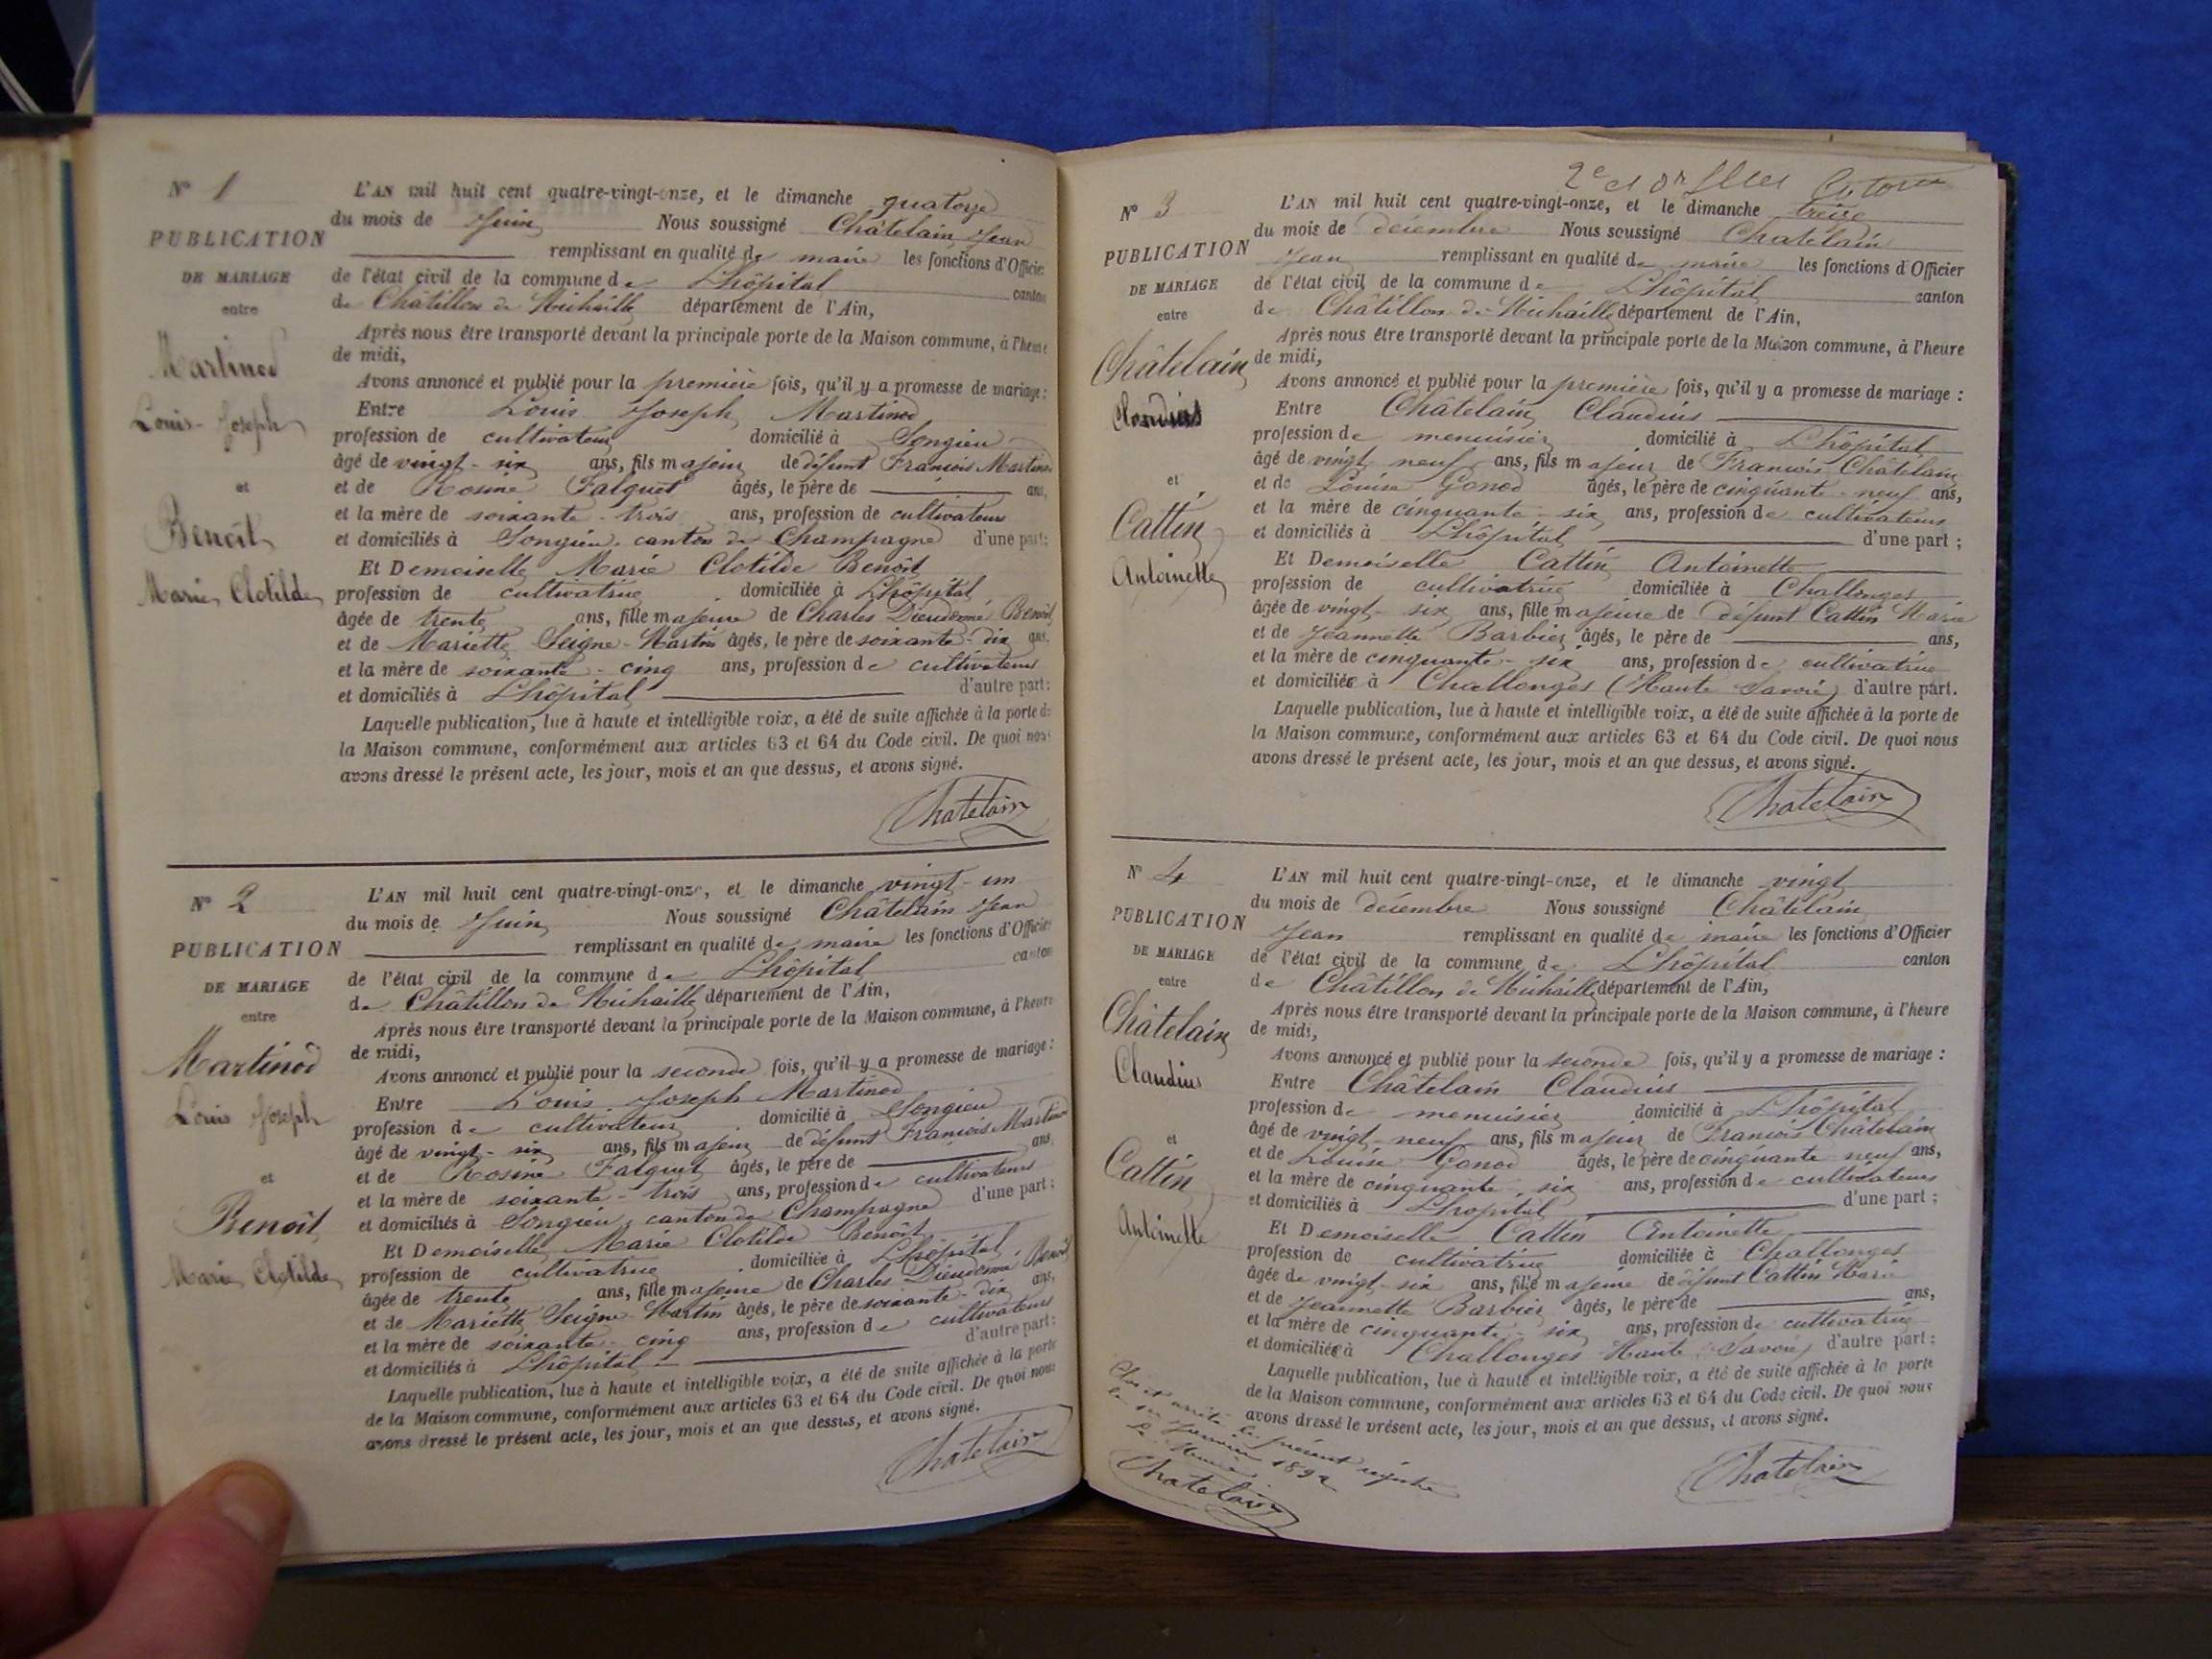 N° 1
PUBLICATION
DE MARIAGE
entre
Martinod
Louis-Joseph
et
Benoît
Marie Clotilde
L'AN mil huit cent quatre-vingt-onze, et le dimanche quatorze
du mois de Juin Nous soussigné Châtelain Jean
remplissant en qualité de maire les fonctions d'Officier
de l'état civil de la commune de Lhôpital canton
de Châtillon de Michaille département de l'Ain,
Après nous être transporté devant la principale porte de la Maison commune, à l'heure
de midi,
Avons annoncé et publié pour la première fois, qu'il y a promesse de mariage :
Entre Louis Joseph Martinod
profession de cultivateur domicilié à Songieu
âgé de vingt-six ans, fils majeur de défunt François Martinod
et de Rosine Falquet âgés, le père de ans,
et la mère de soixante-trois ans, profession de cultivateurs
et domiciliés à Songieu canton de Champagne d'une part;
Et Demoiselle Marie Clotilde Benoît
profession de cultivatrice domiciliée à Lhôpital
âgée de trente ans, fille majeure de Charles Dieudonné Benoît
et de Mariette Seigne-Martin âgés, le père de soixante-dix ans,
et la mère de soixante-cinq ans, profession de cultivateurs
et domiciliés à Lhôpital d'autre part:
Laquelle publication, lue à haute et intelligible voix, a été de suite affichée à la porte de
la Maison commune, conformément aux articles 63 et 64 du Code civil. De quoi nous
avons dressé le présent acte, les jour, mois et an que dessus, et avons signé.
Chatelain
N° 2
PUBLICATION
DE MARIAGE
entre
Martinod
Louis Joseph
et
Benoît
Marie Clotilde
L'AN mil huit cent quatre-vingt-onze, et le dimanche vingt-un
du mois de Juin Nous soussigné Châtelain Jean
remplissant en qualité de maire les fonctions d'Officier
de l'état civil de la commune de Lhôpital canton
de Châtillon de Michaille département de l'Ain,
Après nous être transporté devant la principale porte de la Maison commune, à l'heure
de midi,
Avons annoncé et publié pour la seconde fois, qu'il y a promesse de mariage :
Entre Louis Joseph Martinod
profession de cultivateur domicilié à Songieu
âgé de vingt-six ans, fils majeur de défunt François Martinod
et de Rosine Falquet âgés, le père de ans,
et la mère de soixante-trois ans, profession de cultivateurs
et domiciliés à Songieu canton de Champagne d'une part;
Et Demoiselle Marie Clotilde Benoît
profession de cultivatrice domiciliée à Lhôpital
âgée de trente ans, fille majeure de Charles Dieudonné Benoît
et de Mariette Seigne-Martin âgés, le père de soixante-dix ans,
et la mère de soixante-cinq ans, profession de cultivateurs
et domiciliés à Lhôpital d'autre part:
Laquelle publication, lue à haute et intelligible voix, a été de suite affichée à la porte
de la Maison commune, conformément aux articles 63 et 64 du Code civil. De quoi nous
avons dressé le présent acte, les jour, mois et an que dessus, et avons signé.
Chatelain
2e et
N° 3
PUBLICATION
DE MARIAGE
entre
Châtelain
Claudius
et
Cattin
Antoinette
L'AN mil huit cent quatre-vingt-onze, et le dimanche treize
du mois de décembre Nous soussigné Chatelain
Jean remplissant en qualité de maire les fonctions d'Officier
de l'état civil de la commune de Lhôpital canton
de Châtillon de Michaille département de l'Ain,
Après nous être transporté devant la principale porte de la Maison commune, à l'heure
de midi,
Avons annoncé et publié pour la première fois, qu'il y a promesse de mariage :
Entre Châtelain Claudius
profession de menuisier domicilié à Lhôpital
âgé de vingt neuf ans, fils majeur de François Châtelain
et de Louise Gonod âgés, le père de cinquante-neuf ans,
et la mère de cinquante-six ans, profession de cultivateurs
et domiciliés à Lhôpital d'une part ;
Et Demoiselle Cattin Antoinette
profession de cultivatrice domiciliée à Challonges
âgée de vingt-six ans, fille majeure de défunt Cattin Marie
et de Jeannette Barbier âgés, le père de ans,
et la mère de cinquante-six ans, profession de cultivatrice
et domiciliée à Challonges (Haute Savoie) d'autre part.
Laquelle publication, lue à haute et intelligible voix, a été de suite affichée à la porte de
la Maison commune, conformément aux articles 63 et 64 du Code civil. De quoi nous
avons dressé le présent acte, les jour, mois et an que dessus, et avons signé.
Chatelain
N° 4
PUBLICATION
DE MARIAGE
entre
Châtelain
Claudius
et
Cattin
Antoinette
L'AN mil huit cent quatre-vingt-onze, et le dimanche vingt
du mois de décembre Nous soussigné Châtelain
Jean remplissant en qualité de maire les fonctions d'Officier
de l'état civil de la commune de Lhôpital canton
de Châtillon de Michaille département de l'Ain,
Après nous être transporté devant la principale porte de la Maison commune, à l'heure
de midi,
Avons annoncé et publié pour la seconde fois, qu'il y a promesse de mariage :
Entre Châtelain Claudius
profession de menuisier domicilié à Lhôpital
âgé de vingt-neuf ans, fils majeur de François Châtelain
et de Louise Gonod âgés, le père de cinquante neuf ans,
et la mère de cinquante-six ans, profession de cultivateurs
et domiciliés à Lhopital d'une part ;
Et Demoiselle Cattin Antoinette
profession de cultivatrice domiciliée à Challonges
âgée de vingt-six ans, fille majeure de défunt Cattin Marie
et de Jeannette Barbier âgés, le père de ans,
et la mère de cinquante-six ans, profession de cultivatrice
et domiciliée à Challonges Haute Savoie) d'autre part ;
Laquelle publication, lue à haute et intelligible voix, a été de suite affichée à la porte
de la Maison commune, conformément aux articles 63 et 64 du Code civil. De quoi nous
avons dressé le présent acte, les jour, mois et an que dessus, et avons signé.
Chatelain
Clos et arrêté le présent registre
Janvier 1892
Le Maire
Chatelain